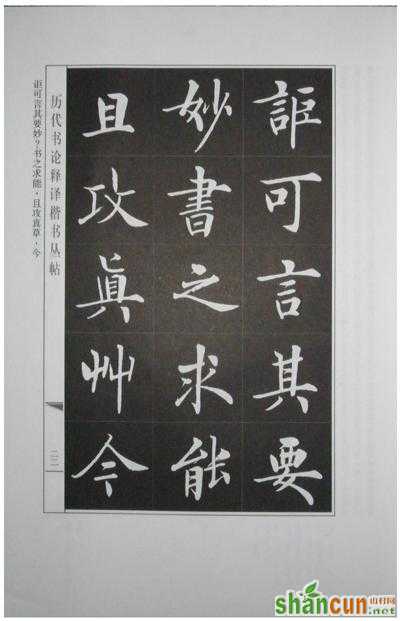 詎可言其要
妙書之求能
且攻真艸今
历代书论释译楷书丛帖
讵可言其要妙？书之求能，且攻真草，今
二二
shancun
山村网
.net